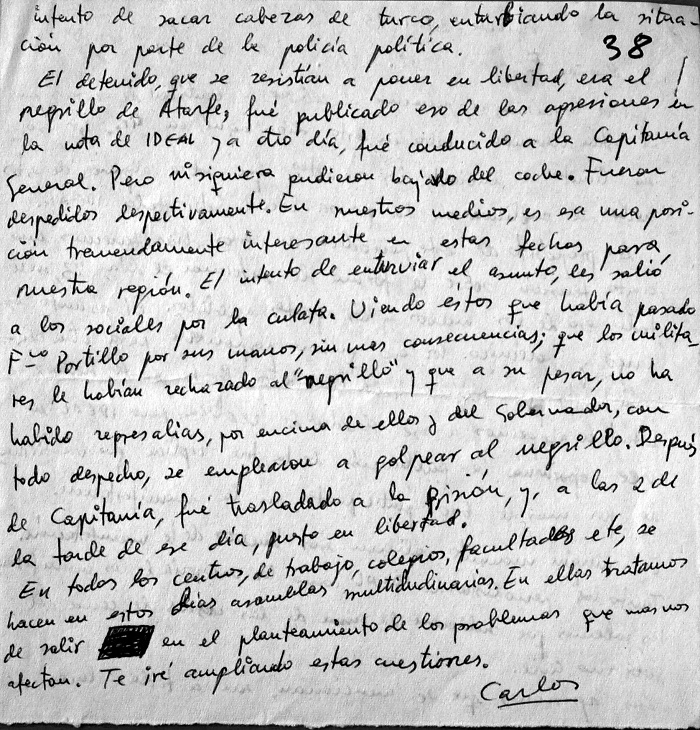 intento de sacar cabezas de turco, enturbiando la situa-
ción por parte de la policía política.
38
El detenido, que se resistían a poner en libertad, era el
negrillo de Atarfe, fué publicado eso de las apresiones en
la nota de IDEAL y a otro día, fué conducido a la Capitanía
General. Pero ni siquiera pudieron bajarlo del coche. Fueron
despedidos despectivamente. En nuestros medios, es esa una posi-
ción tremendamente interesante en estas fechas para
nuestra región. El intento de enturviar el asunto, les salió
a los sociales por la culata. Viendo éstos que había pasado
Fco Portillo por sus manos, sin mas consecuencias; que los milita-
res le habían rechazado al "negrillo" y que a su pesar, no ha
habido represalias, por encima de ellos y del Gobernador, con
todo despecho, se emplearon a golpear al negrillo. Después
de Capitanía, fué trasladado a la Prisión, y, a las 2 de
la tarde de ese día, puesto en libertad.
En todos los centros, de trabajo, colegios, facultades etc, se
hacen en estos días asambleas multitudinarias. En ellas tratamos
de salir en el planteamiento de los problemas que mas nos
afectan. Te iré ampliando estas cuestiones.
Carlos